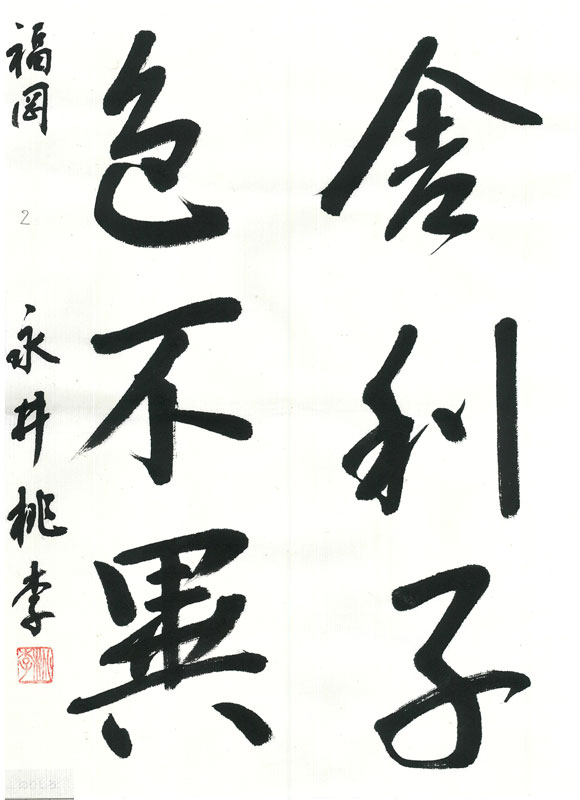 舎利子
色不異
福岡 2 永井桃李